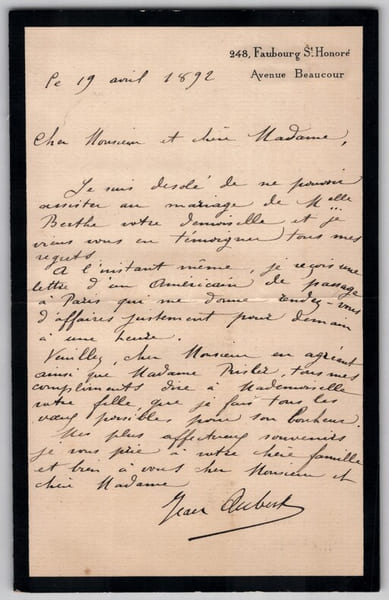 248, Faubourg St. Honoré
Avenue Beaucour
Le 19 avril 1892
Cher Monsieur et chère Madame,
Je suis désolé de ne pouvoir
assister au mariage de Melle
Berthe votre demoiselle et je
viens vous en témoigner tous mes
regrets
A l'instant même, je reçois une
lettre d'un Américain de passage
à Paris qui me donne rendez-vous
d'affaires justement pour demain
à une heure.
Veuillez, cher Monsieur en agréant
ainsi que Madame tous mes
compliments dire à Mademoiselle
votre fille, que je fais tous les
vœux possibles pour son bonheur.
Mes plus affectueux souvenirs
je vous prie à votre chère famille
et bien à vous cher Monsieur et
chère Madame
Jean Aubert